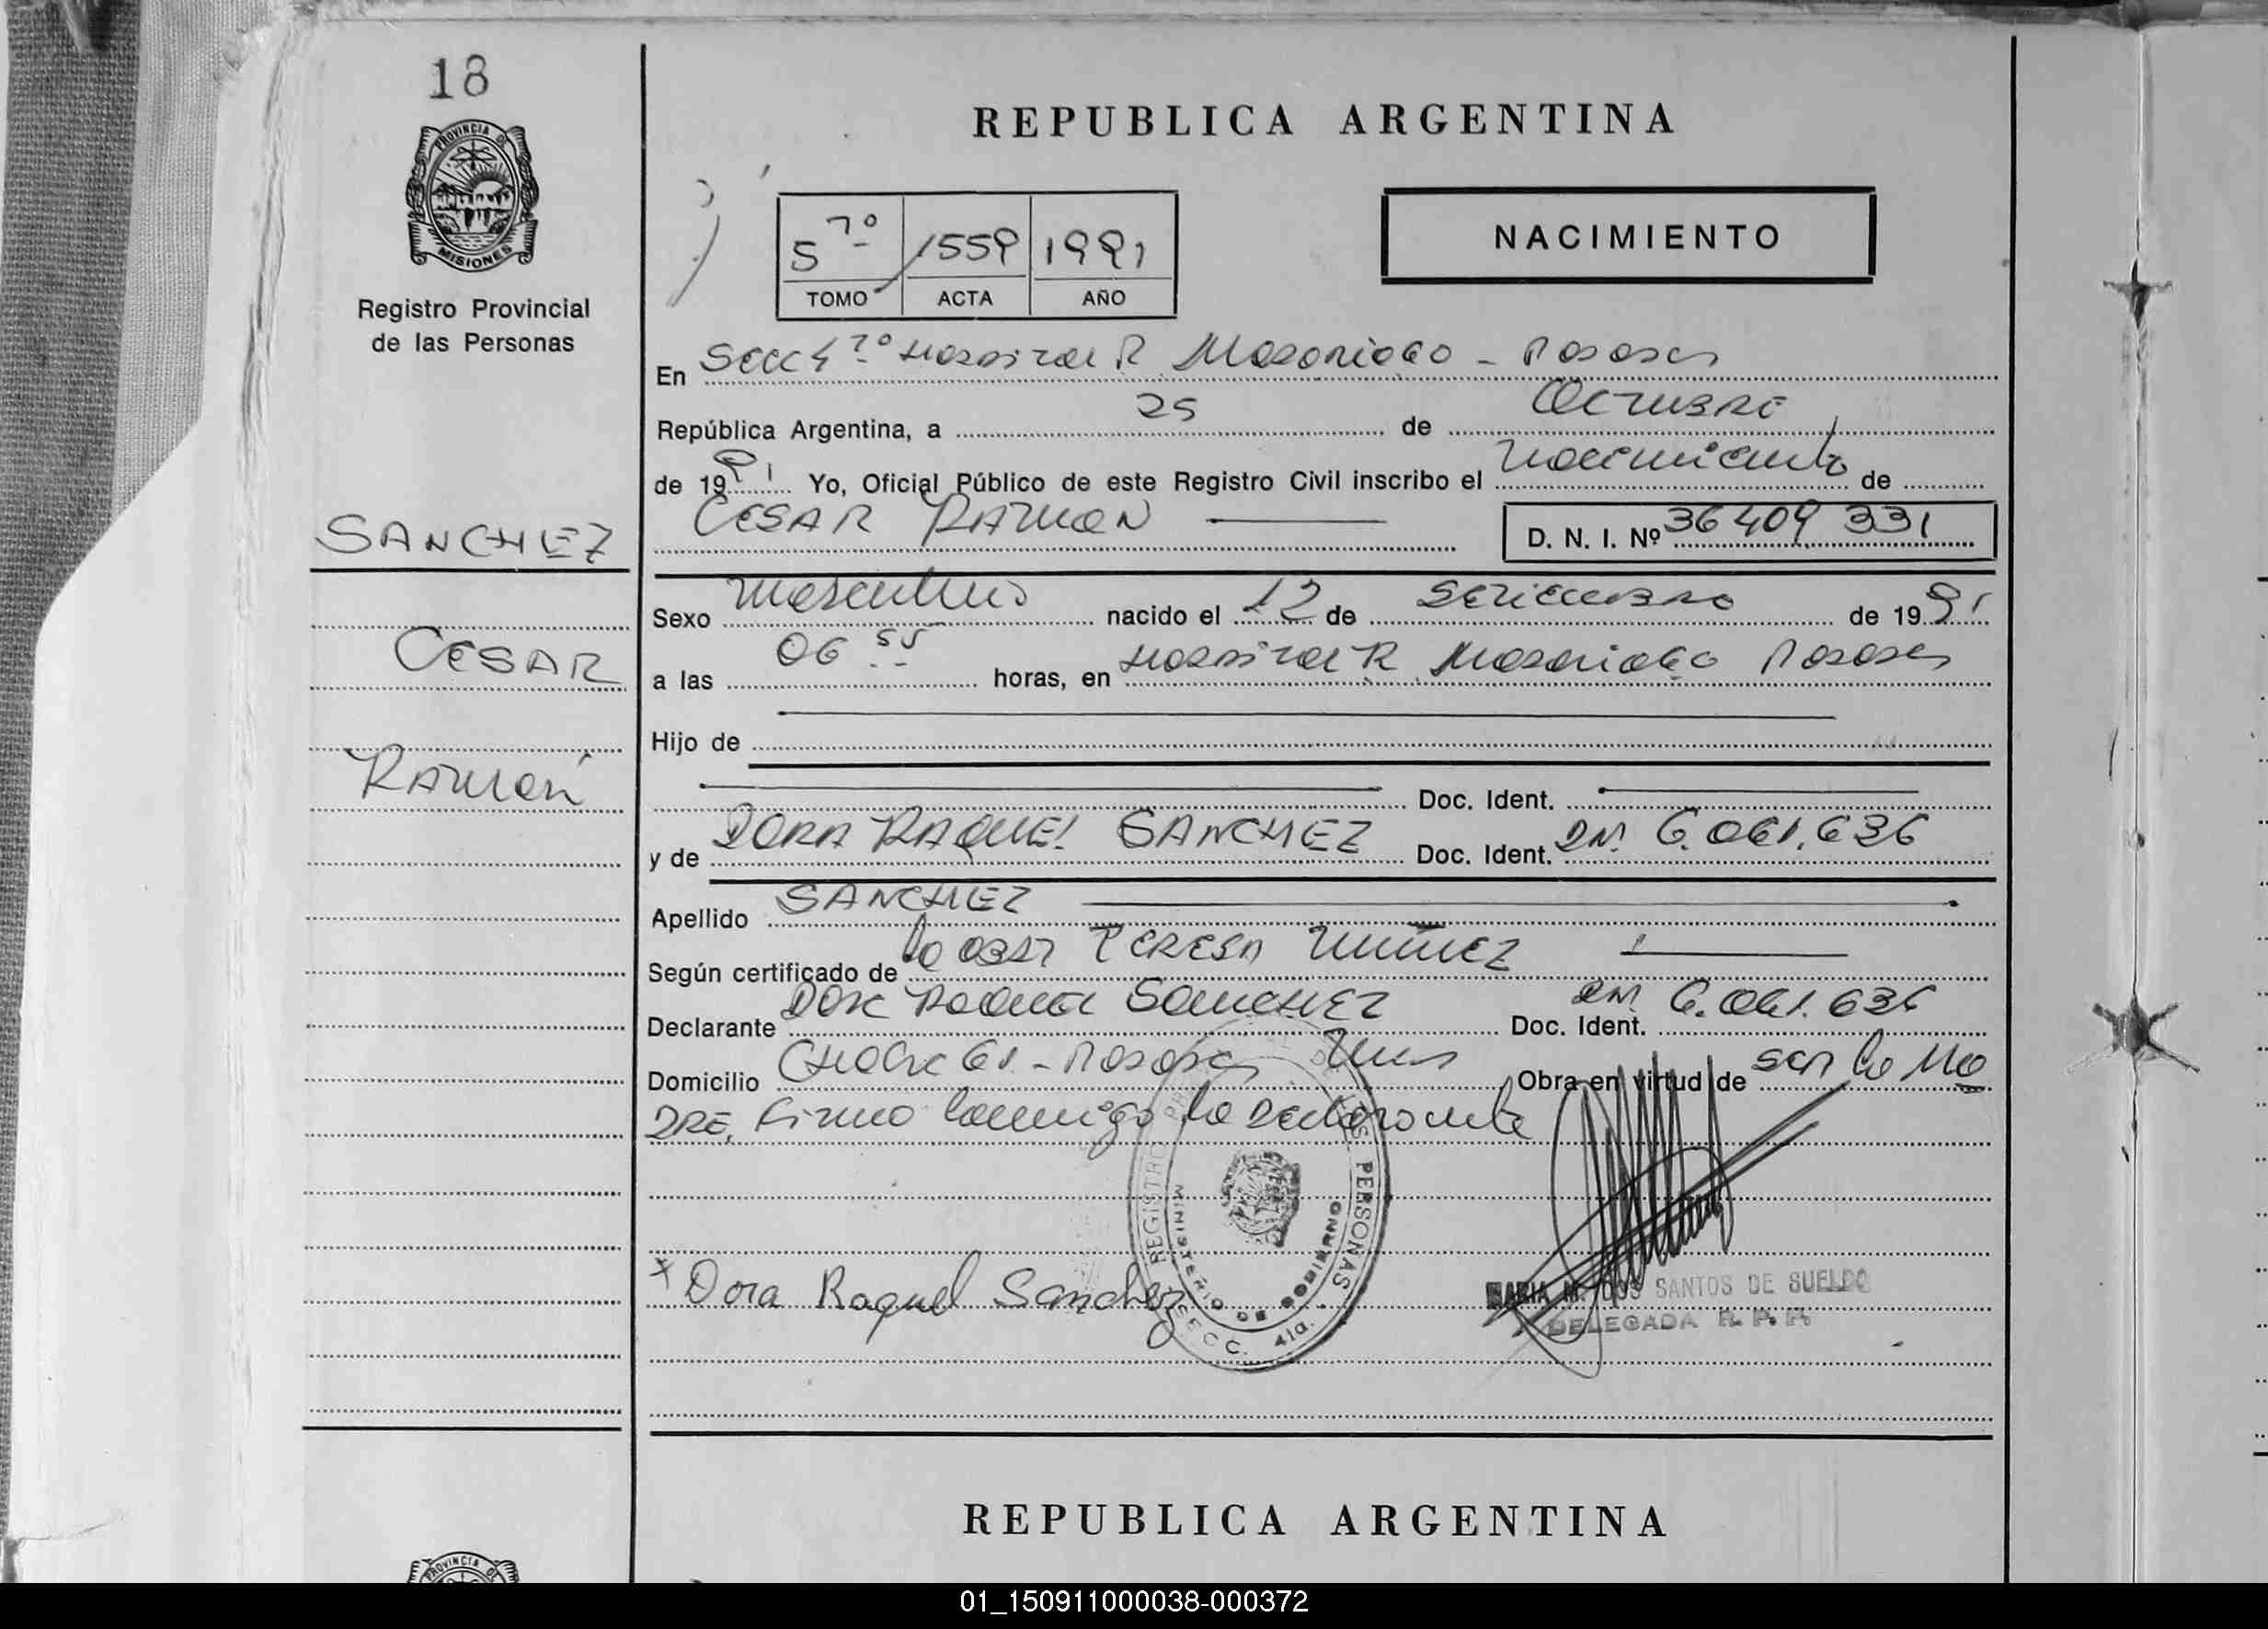 18
PROVINCIA DE
MISIONES
Registro Provincial
de las Personas
SANCHEZ
CESAR
RAMON
REPUBLICA ARGENTINA
NACIMIENTO
5 7º 1559 1991
TOMO ACTA AÑO
En Secc 4 Hospital R Madariaga - Posadas
República Argentina, a 25 de Octubre
de 1991 Yo, Oficial Público de este Registro Civil inscribo el Nacimiento de
CESAR RAMON D. N. I. Nº 36 409 331
Sexo Masculino nacido el 12 de Setiembre de 1991
a las 06 55 horas, en Hospital R Madariaga Posadas
Hijo de
Doc. Ident.
y de DORA RAQUEL SANCHEZ Doc. Ident. DNI 6.061.636
Apellido SANCHEZ
Según certificado de la obst TERESA Nuñez
Declarante Raquel Sanchez Doc. Ident. DNI 6.061.636
Domicilio 61 - Posadas Mnes Obra en virtud de ser la MA
DRE, Firma conmigo la Declarante
x Dora Raquel Sanchez
REGISTRO PERSONAS
MINISTERIO DE GOBIERNO
SECC. 4ta.
MARIA M. DOS SANTOS DE SUELDO
DELEGADA R. P. P.
REPUBLICA ARGENTINA
PROVINCIA DE
01_150911000038-000372